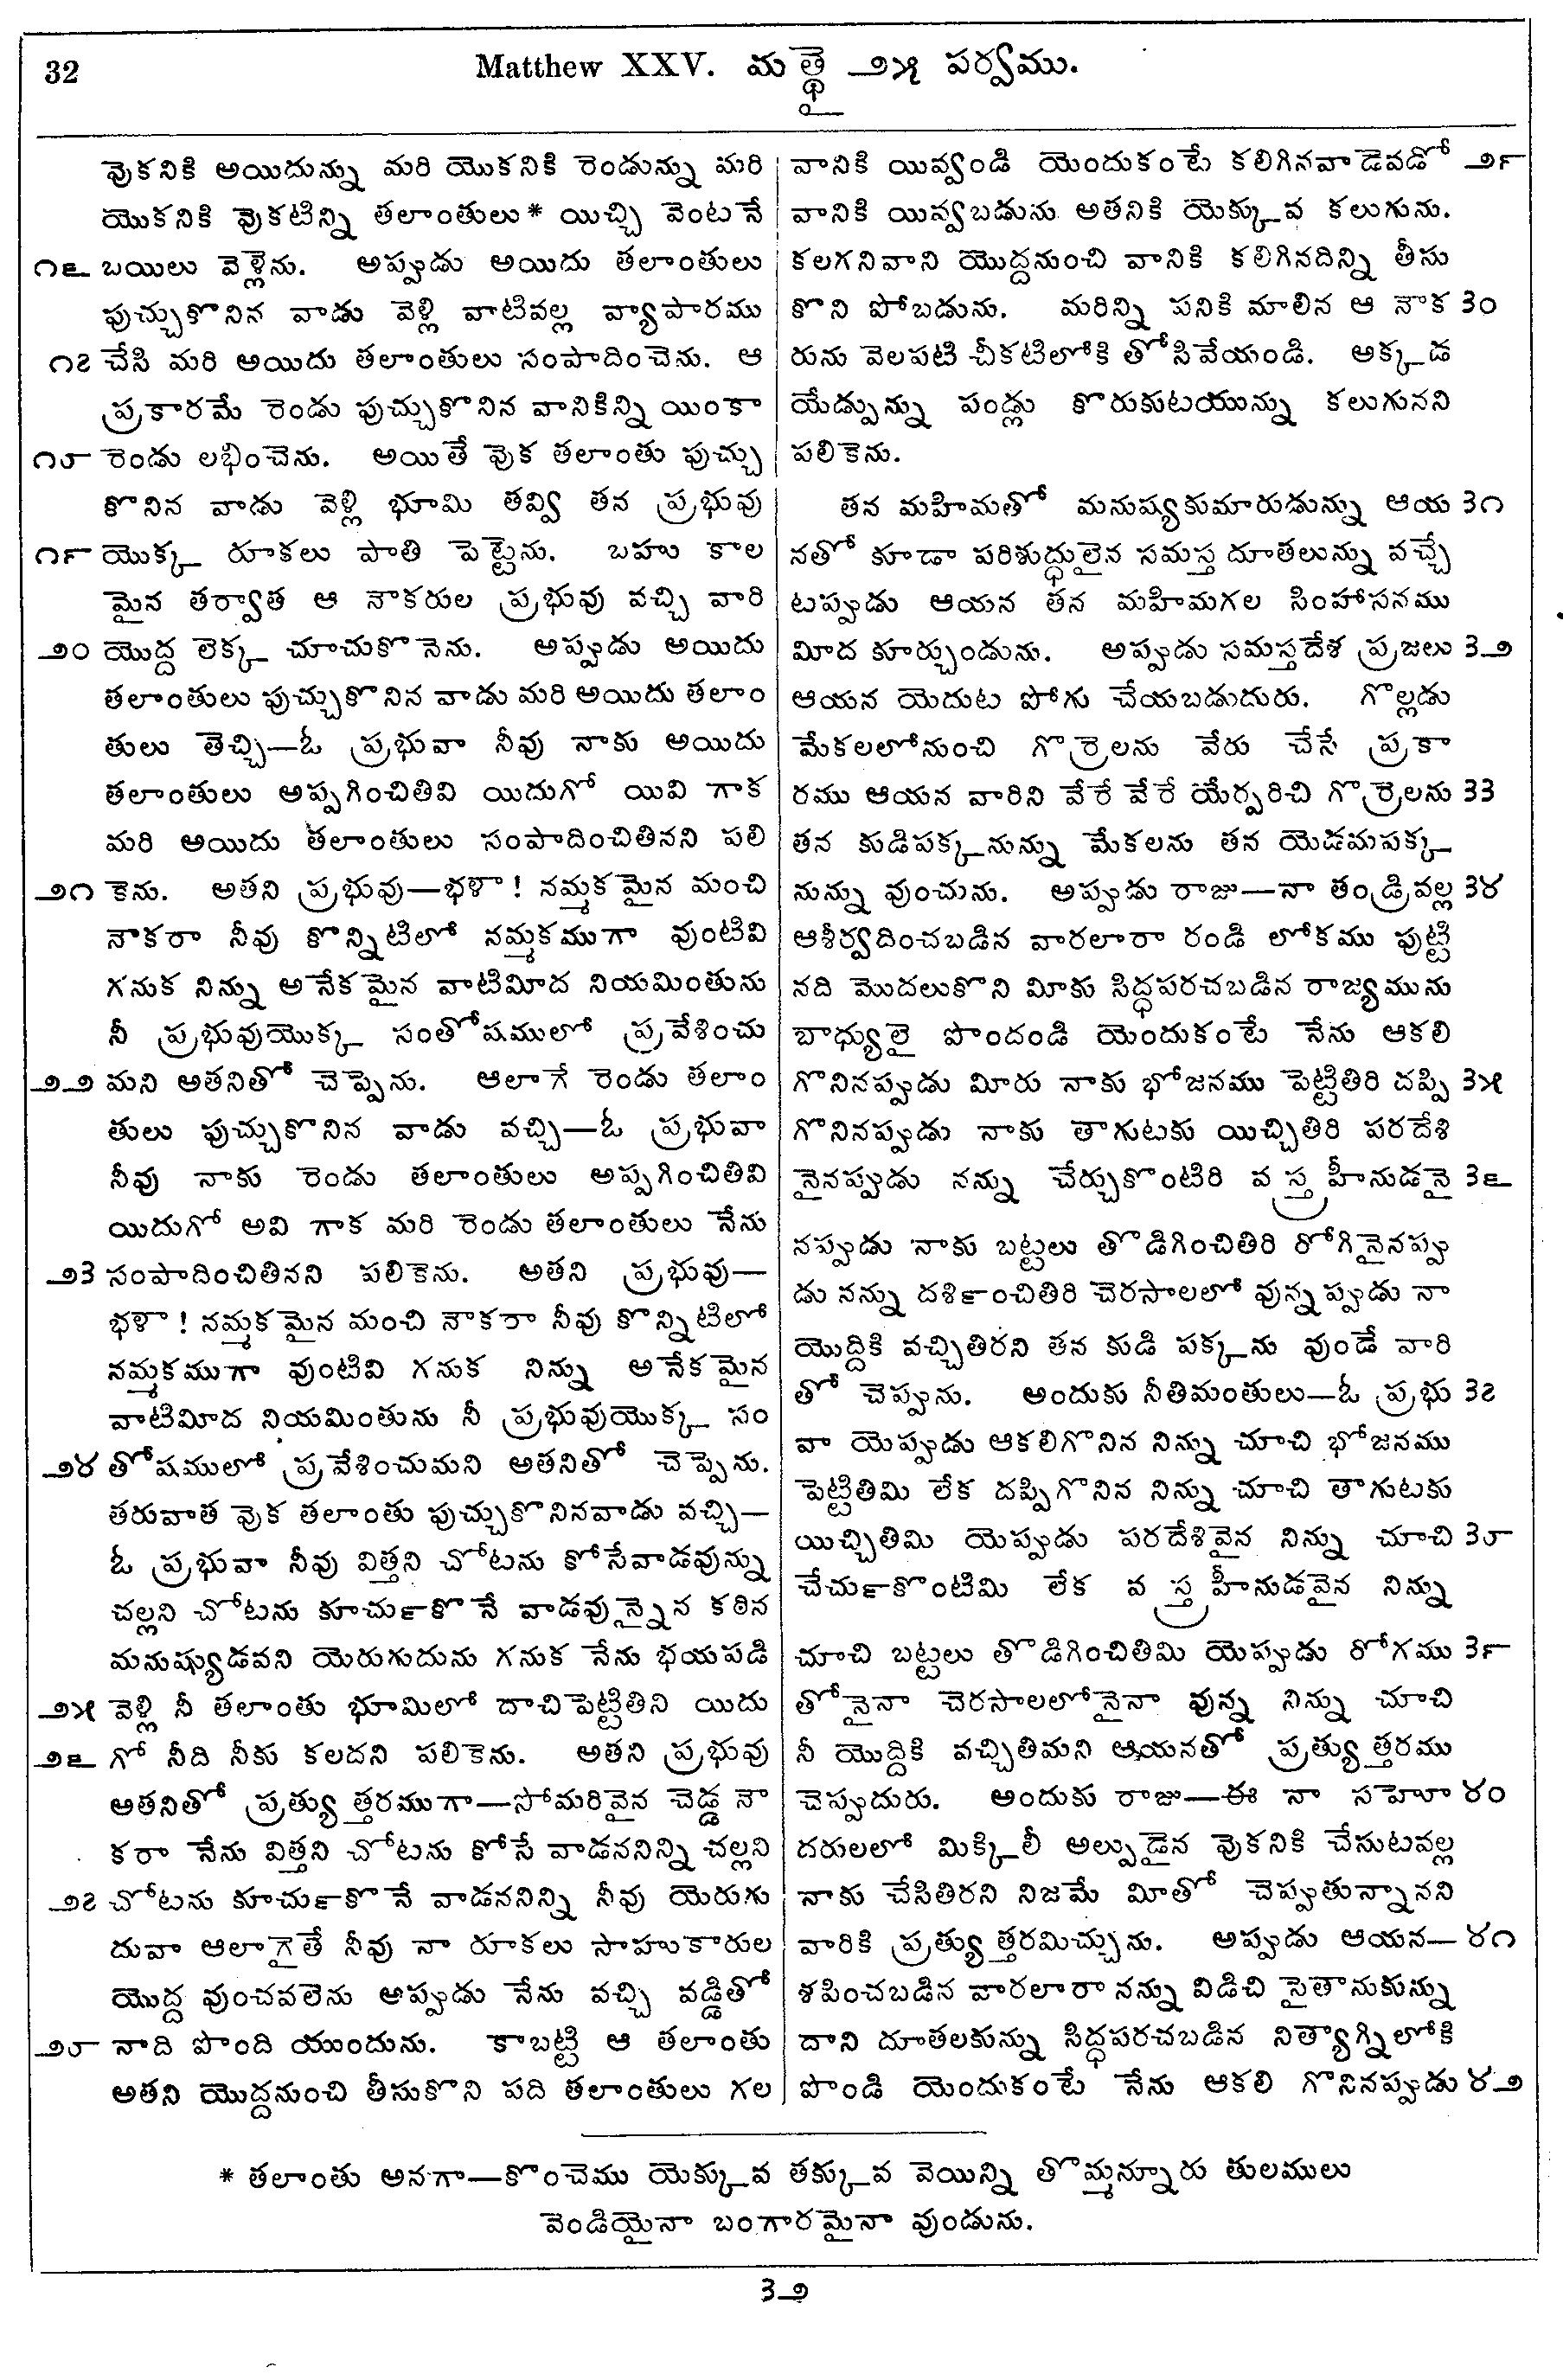 32
Matthew XXV. మత్థై ౨౫ పర్వము.
వుకనికి అయిదున్ను మరి యొకనికి రెండున్ను మరి
యొకనికి వుకటిన్ని తలాంతులు* యిచ్చి వెంటనే
౧౬ బయిలు వెళ్లెను. అప్పుడు అయిదు తలాంతులు
పుచ్చుకొనిన వాడు వెళ్లి వాటివల్ల వ్యాపారము
౧౭ చేసి మరి అయిదు తలాంతులు సంపాదించెను. ఆ
ప్రకారమే రెండు పుచ్చుకొనిన వానికిన్ని యింకా
౧౮ రెండు లభించెను. అయితే వుక తలాంతు పుచ్చు
కొనిన వాడు వెళ్లి భూమి తవ్వి తన ప్రభువు
౧౯ యొక్క రూకలు పాతి పెట్టెను. బహు కాల
మైన తర్వాత ఆ నౌకరుల ప్రభువు వచ్చి వారి
౨౦ యొద్ద లెక్క చూచుకొనెను. అప్పుడు అయిదు
తలాంతులు పుచ్చుకొనిన వాడు మరి అయిదు తలాం
తులు తెచ్చి—ఓ ప్రభువా నీవు నాకు అయిదు
తలాంతులు అప్పగించితివి యిదుగో యివి గాక
మరి అయిదు తలాంతులు సంపాదించితినని పలి
౨౧ కెను. అతని ప్రభువు—భళా! నమ్మకమైన మంచి
నౌకరా నీవు కొన్నిటిలో నమ్మకముగా వుంటివి
గనుక నిన్ను అనేకమైన వాటిమీద నియమింతును
నీ ప్రభువుయొక్క సంతోషములో ప్రవేశించు
౨౨ మని అతనితో చెప్పెను. ఆలాగే రెండు తలాం
తులు పుచ్చుకొనిన వాడు వచ్చి—ఓ ప్రభువా
నీవు నాకు రెండు తలాంతులు అప్పగించితివి
యిదుగో అవి గాక మరి రెండు తలాంతులు నేను
౨౩ సంపాదించితినని పలికెను. అతని ప్రభువు—
భళా! నమ్మకమైన మంచి నౌకరా నీవు కొన్నిటిలో
నమ్మకముగా వుంటివి గనుక నిన్ను అనేకమైన
వాటిమీద నియమింతును నీ ప్రభువుయొక్క సం
౨౪ తోషములో ప్రవేశించుమని అతనితో చెప్పెను.
తరువాత వుక తలాంతు పుచ్చుకొనినవాడు వచ్చి—
ఓ ప్రభువా నీవు విత్తని చోటను కోసేవాడవున్ను
చల్లని చోటను కూచుఁకొనే వాడవున్నైన కఠిన
మనుష్యుడవని యెరుగుదును గనుక నేను భయపడి
౨౫ వెళ్లి నీ తలాంతు భూమిలో దాచిపెట్టితిని యిదు
౨౬ గో నీది నీకు కలదని పలికెను. అతని ప్రభువు
అతనితో ప్రత్యుత్తరముగా—సోమరివైన చెడ్డ నౌ
కరా నేను విత్తని చోటను కోసే వాడననిన్ని చల్లని
౨౭ చోటను కూచుఁకొనే వాడననిన్ని నీవు యెరుగు
దువా ఆలాగైతే నీవు నా రూకలు సాహుకారుల
యొద్ద వుంచవలెను అప్పుడు నేను వచ్చి వడ్డితో
౨౮ నాది పొంది యుందును. కాబట్టి ఆ తలాంతు
అతని యొద్దనుంచి తీసుకొని పది తలాంతులు గల
వానికి యివ్వండి యెందుకంటే కలిగినవాడెవడో ౨౯
వానికి యివ్వబడును అతనికి యెక్కువ కలుగును.
కలగనివాని యొద్దనుంచి వానికి కలిగినదిన్ని తీసు
కొని పోబడును. మరిన్ని పనికి మాలిన ఆ నౌక ౩౦
రును వెలపటి చీకటిలోకి తోసివేయండి. అక్కడ
యేడ్పున్ను పండ్లు కొరుకుటయున్ను కలుగునని
పలికెను.
తన మహిమతో మనుష్యకుమారుడున్ను ఆయ ౩౧
నతో కూడా పరిశుద్ధులైన సమస్త దూతలున్ను వచ్చే
టప్పుడు ఆయన తన మహిమగల సింహాసనము
మీద కూర్చుండును. అప్పుడు సమస్తదేశ ప్రజలు ౩౨
ఆయన యెదుట పోగు చేయబడుదురు. గొల్లడు
మేకలలోనుంచి గొర్రెలను వేరు చేసే ప్రకా
రము ఆయన వారిని వేరే వేరే యేర్పరిచి గొర్రెలను ౩౩
తన కుడిపక్కనున్ను మేకలను తన యెడమపక్క
నున్ను వుంచును. అప్పుడు రాజు—నా తండ్రివల్ల ౩౪
ఆశీర్వదించబడిన వారలారా రండి లోకము పుట్టి
నది మొదలుకొని మీకు సిద్ధపరచబడిన రాజ్యమును
బాధ్యులై పొందండి యెందుకంటే నేను ఆకలి
గొనినప్పుడు మీరు నాకు భోజనము పెట్టితిరి దప్పి ౩౫
గొనినప్పుడు నాకు తాగుటకు యిచ్చితిరి పరదేశి
నైనప్పుడు నన్ను చేర్చుకొంటిరి వస్త్రహీనుడనై ౩౬
నప్పుడు నాకు బట్టలు తొడిగించితిరి రోగినైనప్పు
డు నన్ను దశిఁంచితిరి చెరసాలలో వున్నప్పుడు నా
యొద్దికి వచ్చితిరని తన కుడి పక్కను వుండే వారి
తో చెప్పును. అందుకు నీతిమంతులు—ఓ ప్రభు ౩౭
వా యెప్పుడు ఆకలిగొనిన నిన్ను చూచి భోజనము
పెట్టితిమి లేక దప్పిగొనిన నిన్ను చూచి తాగుటకు
యిచ్చితిమి యెప్పుడు పరదేశివైన నిన్ను చూచి ౩౮
చేచుఁకొంటిమి లేక వస్త్రహీనుడవైన నిన్ను
చూచి బట్టలు తొడిగించితిమి యెప్పుడు రోగము ౩౯
తోనైనా చెరసాలలోనైనా వున్న నిన్ను చూచి
నీ యొద్దికి వచ్చితిమని ఆయనతో ప్రత్యుత్తరము
చెప్పుదురు. అందుకు రాజు—ఈ నా సహో ౪౦
దరులలో మిక్కిలీ అల్పుడైన వుకనికి చేసుటవల్ల
నాకు చేసితిరని నిజమే మీతో చెప్పుతున్నానని
వారికి ప్రత్యుత్తరమిచ్చును. అప్పుడు ఆయన— ౪౧
శపించబడిన వారలారా నన్ను విడిచి సైతానుకున్ను
దాని దూతలకున్ను సిద్ధపరచబడిన నిత్యాగ్నిలోకి
పొండి యెందుకంటే నేను ఆకలి గొనినప్పుడు ౪౨
* తలాంతు అనగా—కొంచెము యెక్కువ తక్కువ వెయిన్ని తొమ్మన్నూరు తులములు
వెండియైనా బంగారమైనా వుండును.
౩౨